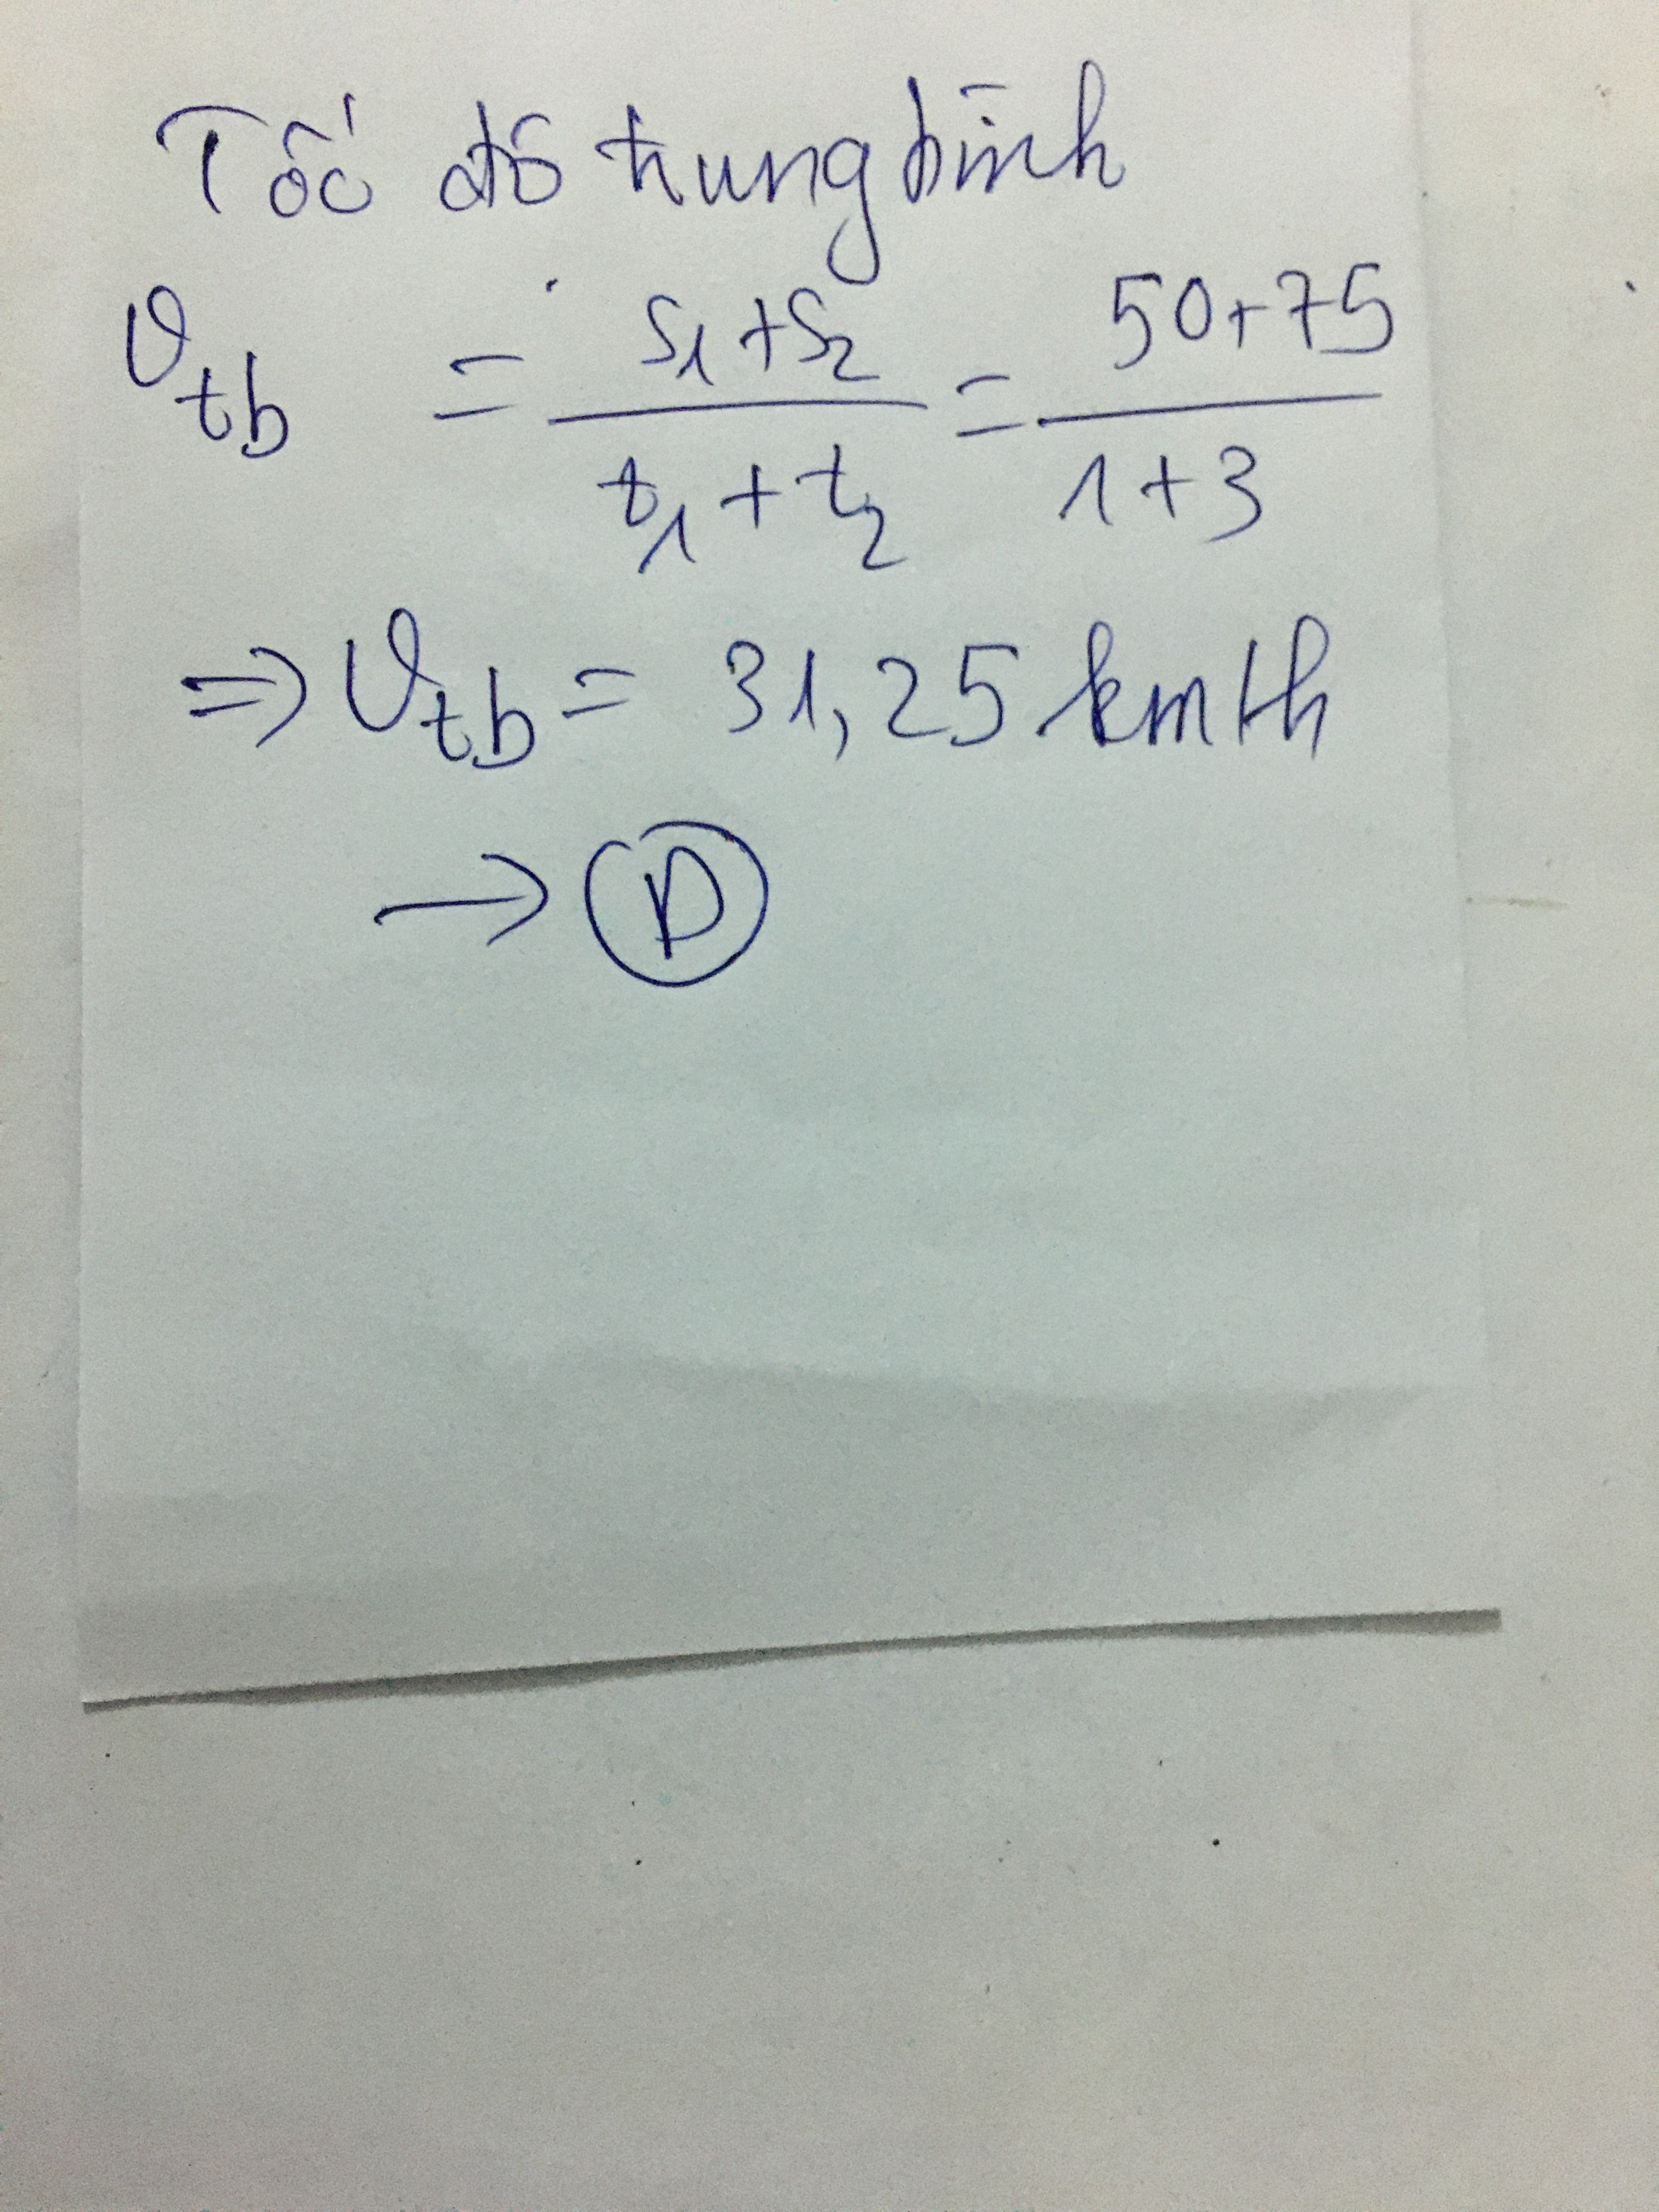 Tốc độ trung bình
v_tb = (s₁+s₂)/(t₁+t₂) = (50+75)/(1+3)
=> v_tb = 31,25 km/h
→ D